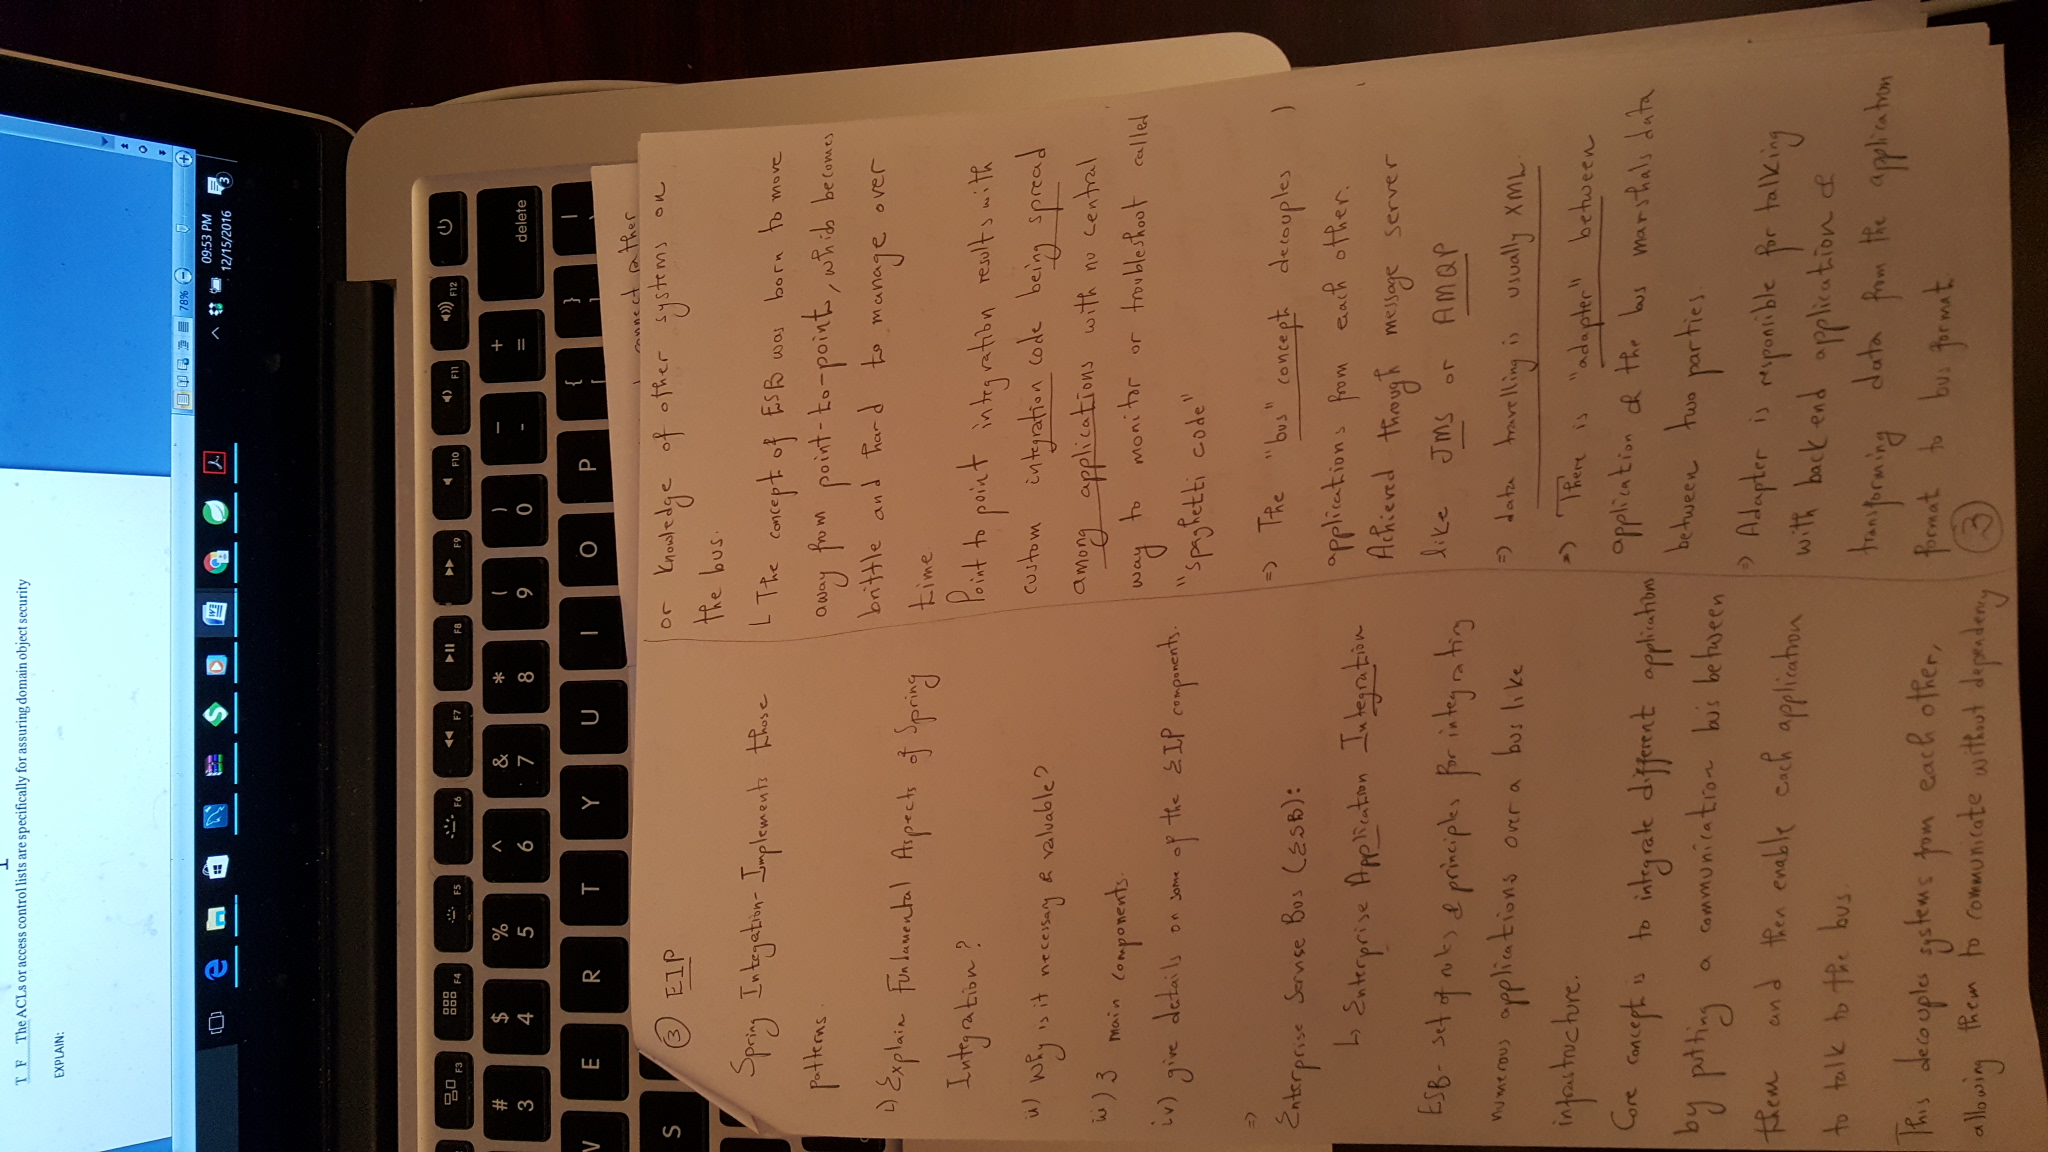 T F The ACLs or access control lists are specifically for assuring domain object security
EXPLAIN:
78%
09:53 PM
12/15/2016
3
F3 F4 F5 F6 F7 F8 F9 F10 F11 F12
# $ % ^ & * ( ) _ +
3 4 5 6 7 8 9 0 - = delete
E R T Y U I O P { } |
S
connect rather
③ EIP
Spring Integation- Implements those
patterns.
i) Explain Fundamental Aspects of Spring
Integration?
ii) Why is it necessary & valuable?
iii) 3 main components.
iv) give details on some of the EIP components.
=>
Enterprise Servise Bus (ESB):
↳ Enterprise Application Integration
ESB- set of rules & principles for integrating
numerous applications over a bus like
infrastructure.
Core concept is to integrate different applications
by putting a communication bus between
them and then enable each application
to talk to the bus.
This decouples systems from each other,
allowing them to communicate without dependency
or knowledge of other systems on
the bus.
L The concept of ESB was born to move
away from point-to-point, which becomes
brittle and hard to manage over
time.
Point to point integration results with
custom integration code being spread
among applications with no central
way to monitor or troubleshoot called
"spaghetti code"
=> The "bus" concept decouples
applications from each other.
Achieved through message server
like JMS or AMQP
=> data travelling is usually XML.
=> There is "adapter" between
application & the bus marshals data
between two parties.
=> Adapter is responsible for talking
with back end application &
transforming data from the application
format to bus format.
③